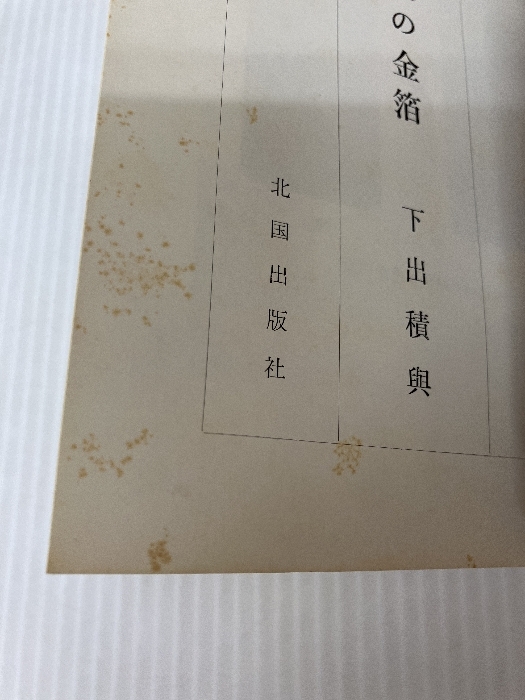 の金箔 下出積與
北国出版社